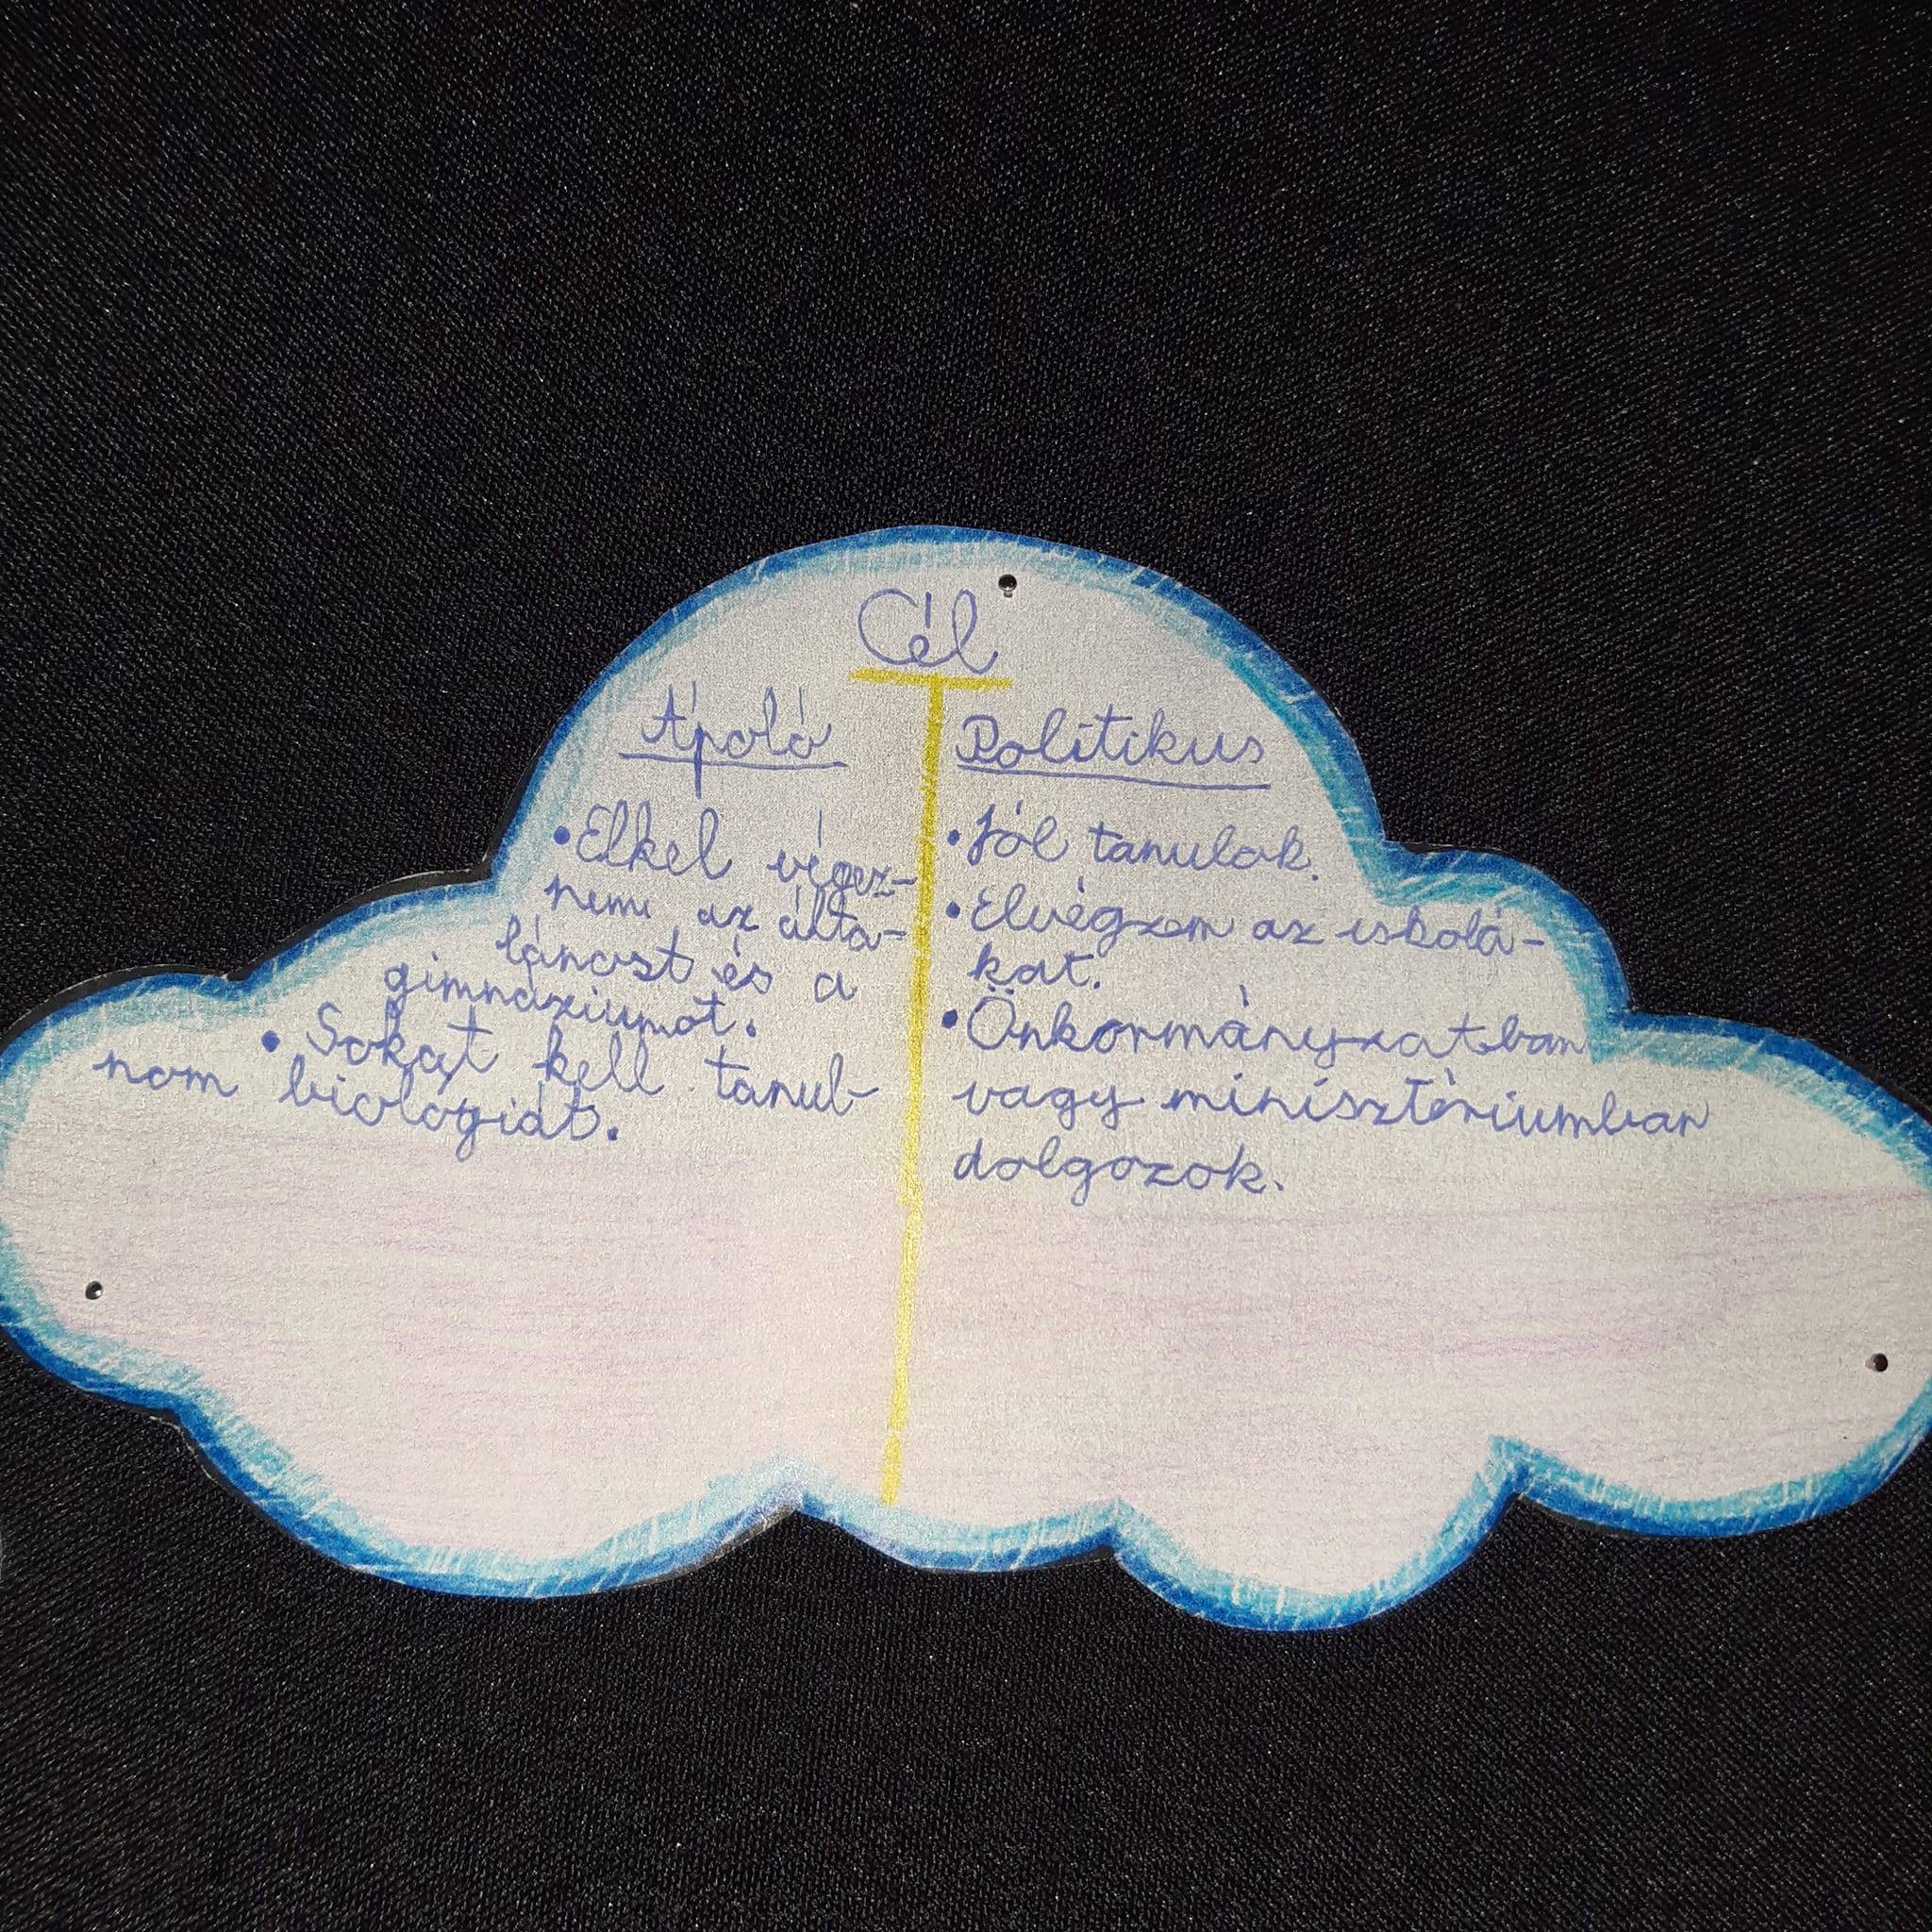 Cél
Ápoló
• Elkel végez-
nem az álta-
lánost és a
gimnáziumot.
• Sokat kell tanul-
nom biológiát.
Politikus
• Jól tanulok.
• Elvégzem az iskolá-
kat.
• Önkormányzatban
vagy minisztériumban
dolgozok.